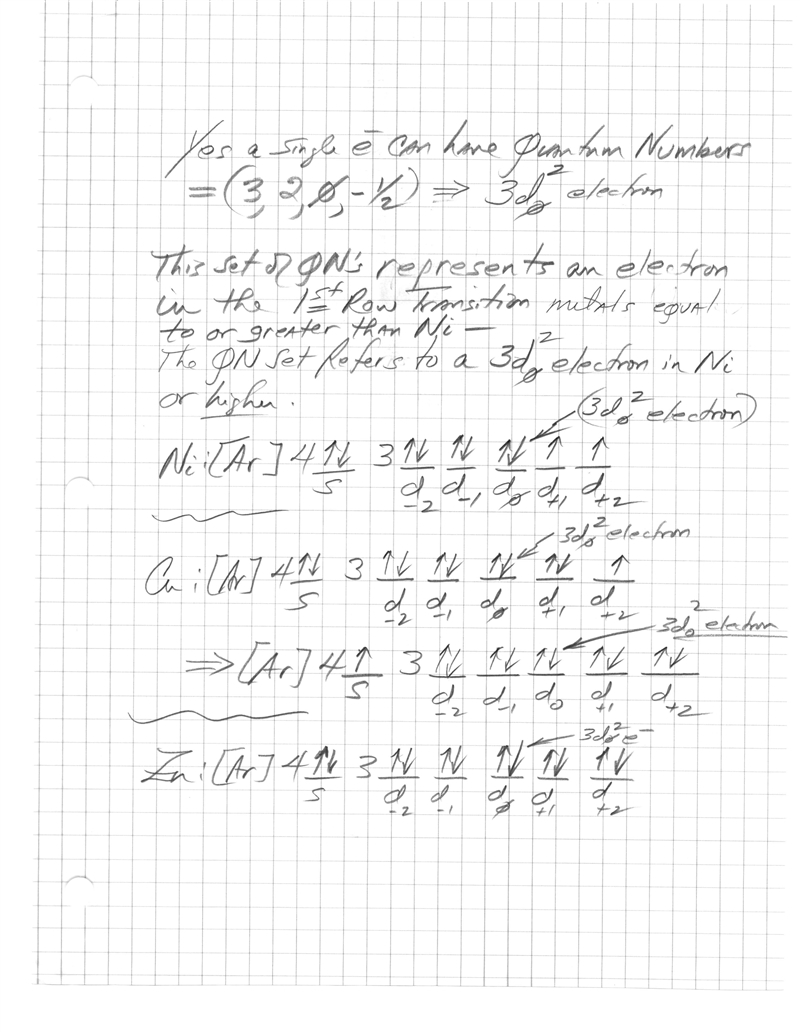 Yes a single e⁻ can have Quantum Numbers
= (3, 2, 0, -1/2) ⇒ 3d₀² electron
This set of QN's represents an electron
in the 1st Row Transition metals equal
to or greater than Ni —
The QN set Refers to a 3d₀² electron in Ni
or higher.
(3d₀² electron)
Ni: [Ar] 4 ↑↓ 3 ↑↓ ↑↓ ↑↓ ↑ ↑
s d₋₂ d₋₁ d₀ d₊₁ d₊₂
3d₀² electron
Cu: [Ar] 4 ↑↓ 3 ↑↓ ↑↓ ↑↓ ↑↓ ↑
s d₋₂ d₋₁ d₀ d₊₁ d₊₂
3d₀² electron
⇒ [Ar] 4 ↑ 3 ↑↓ ↑↓ ↑↓ ↑↓ ↑↓
s d₋₂ d₋₁ d₀ d₊₁ d₊₂
3d₀² e⁻
Zn: [Ar] 4 ↑↓ 3 ↑↓ ↑↓ ↑↓ ↑↓ ↑↓
s d₋₂ d₋₁ d₀ d₊₁ d₊₂